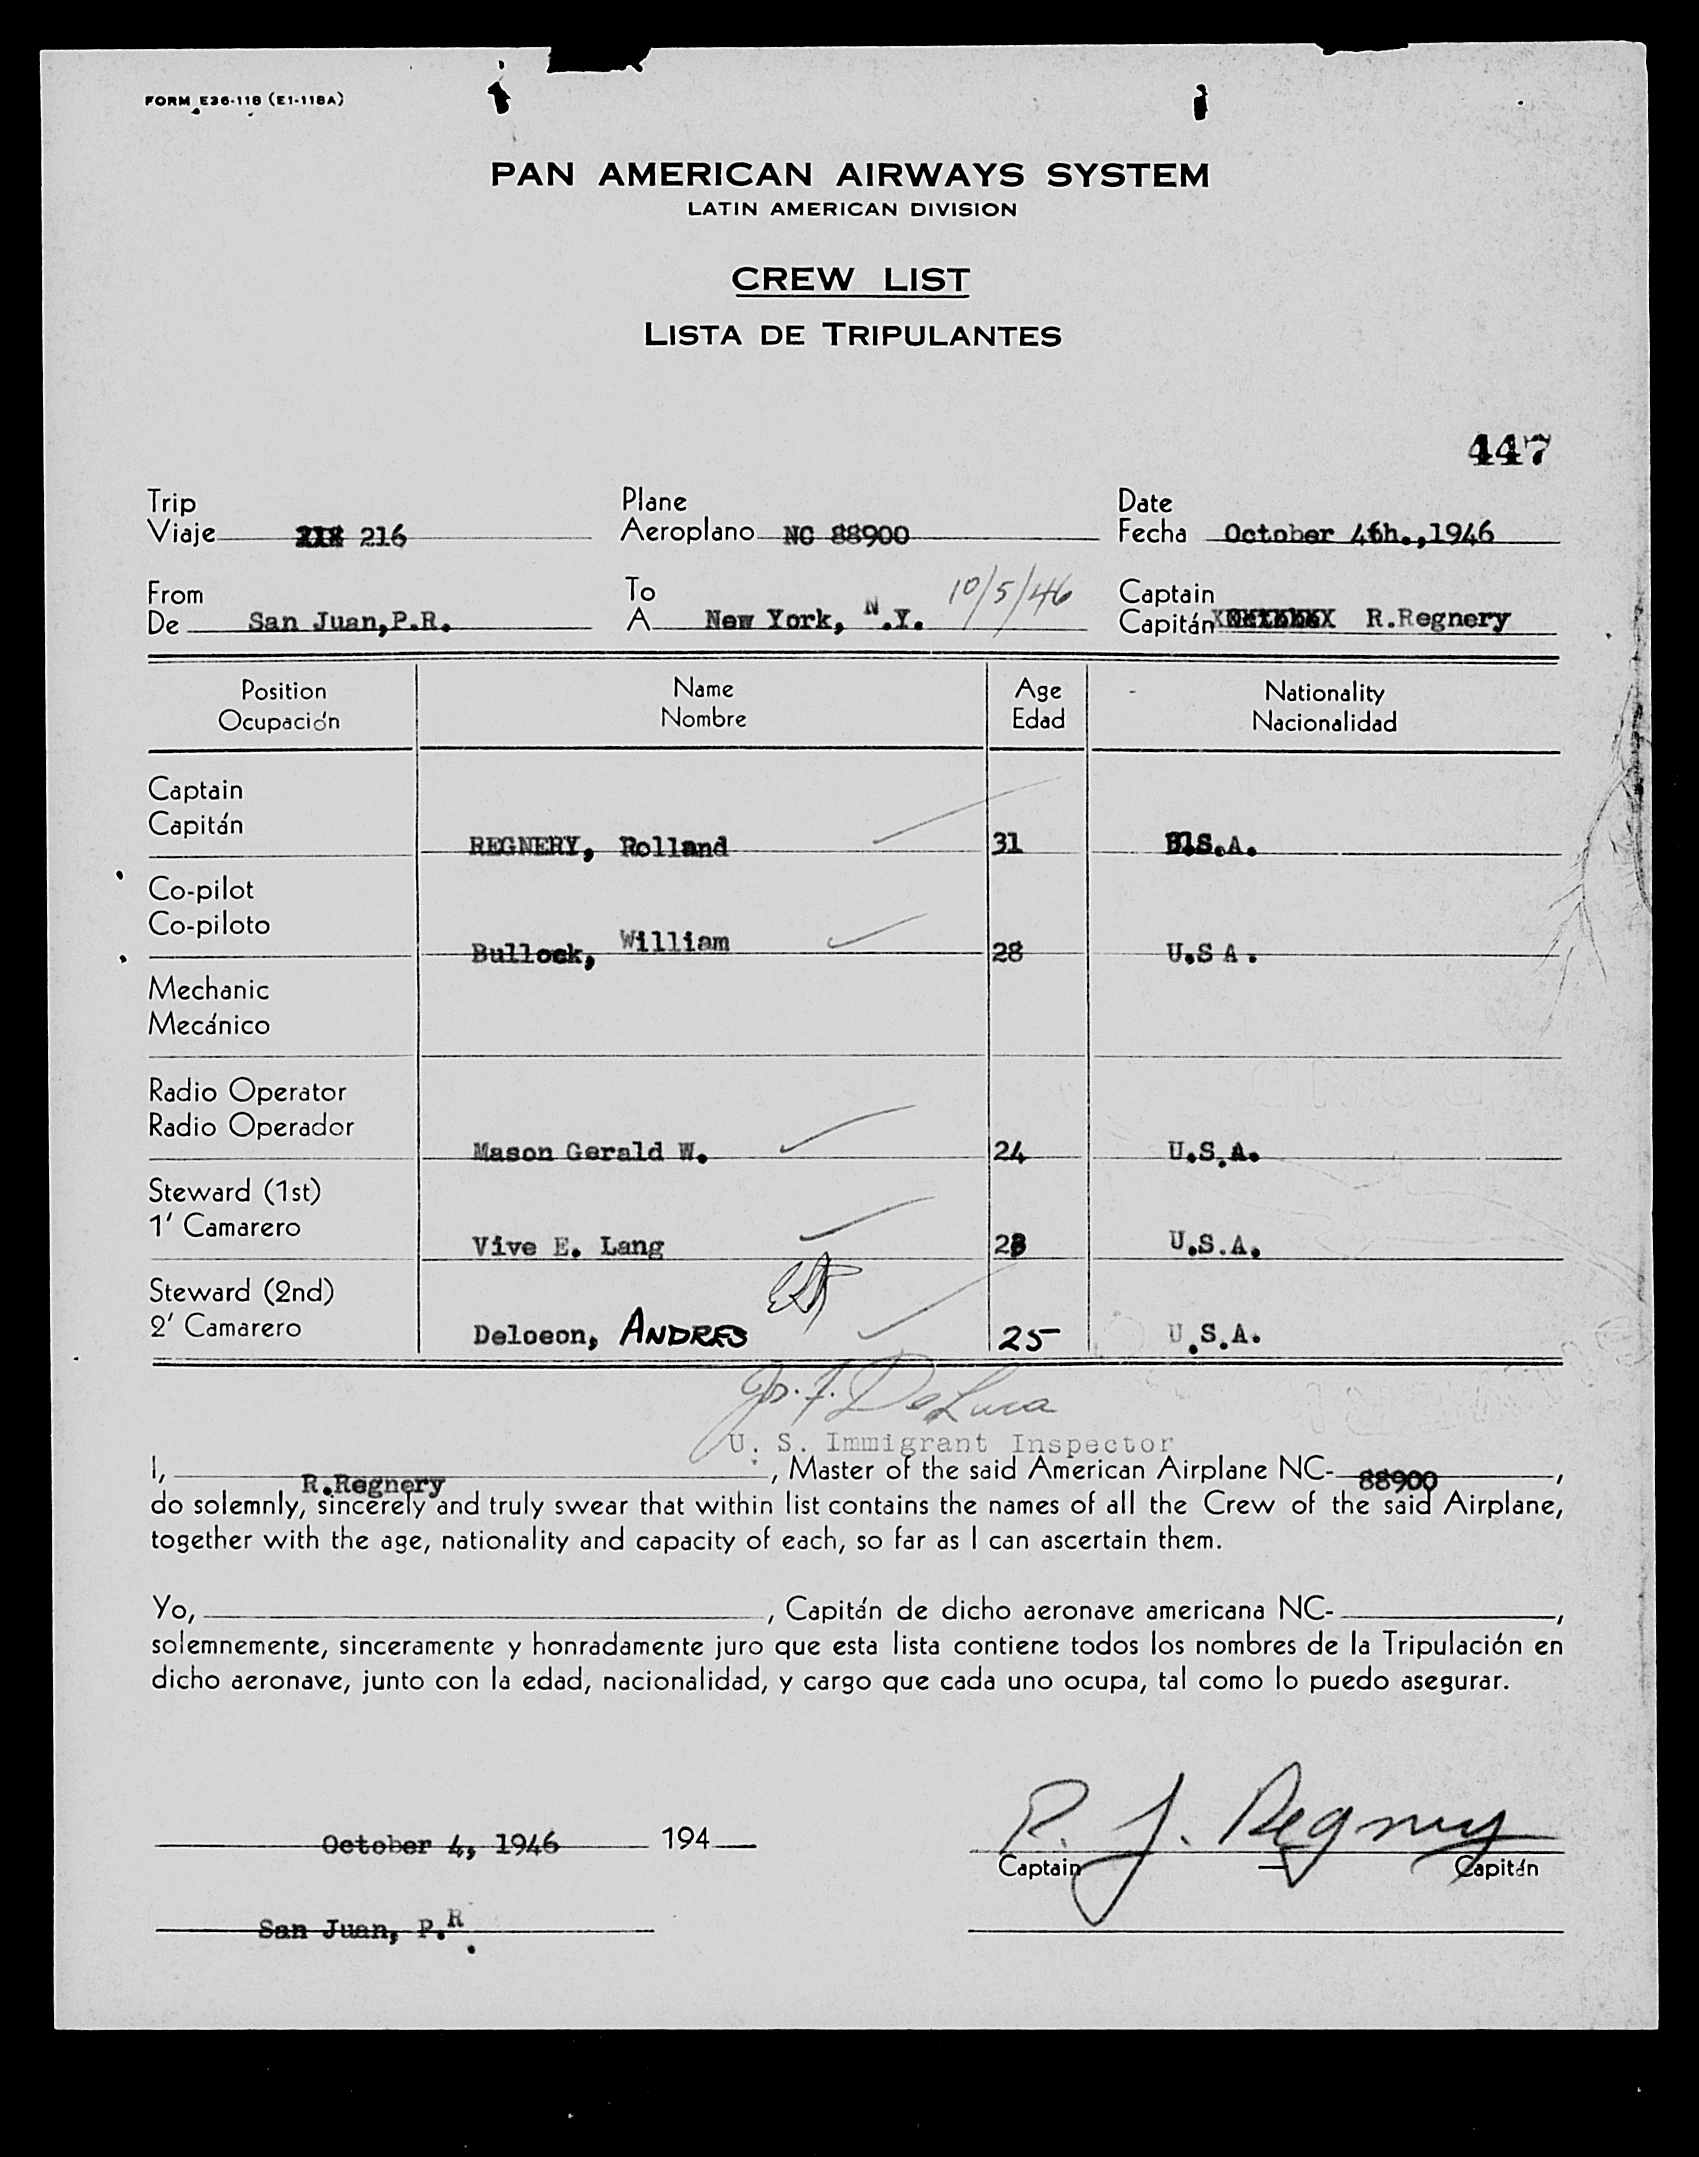 FORM E36-118 (E1-118A)
PAN AMERICAN AIRWAYS SYSTEM
LATIN AMERICAN DIVISION
CREW LIST
LISTA DE TRIPULANTES
447
Trip Plane Date
Viaje 216 Aeroplano NC 88900 Fecha October 4th.,1946
From To 10/5/46 Captain
De San Juan,P.R. A New York, N.Y. Capitán R.Regnery
Position Name Age Nationality
Ocupación Nombre Edad Nacionalidad
Captain
Capitán REGNERY, Rolland 31 U.S.A.
Co-pilot
Co-piloto Bullock, William 28 U.S A.
Mechanic
Mecánico
Radio Operator
Radio Operador Mason Gerald W. 24 U.S.A.
Steward (1st)
1' Camarero Vive E. Lang 28 U.S.A.
Steward (2nd)
2' Camarero Deloeon, ANDRES 25 U.S.A.
Jos. F. DeLuca
U. S. Immigrant Inspector
I, R.Regnery, Master of the said American Airplane NC- 88900,
do solemnly, sincerely and truly swear that within list contains the names of all the Crew of the said Airplane,
together with the age, nationality and capacity of each, so far as I can ascertain them.
Yo, , Capitán de dicho aeronave americana NC- ,
solemnemente, sinceramente y honradamente juro que esta lista contiene todos los nombres de la Tripulación en
dicho aeronave, junto con la edad, nacionalidad, y cargo que cada uno ocupa, tal como lo puedo asegurar.
October 4, 1946 194 R. J. Regnery
Captain — Capitán
San Juan, P.R.